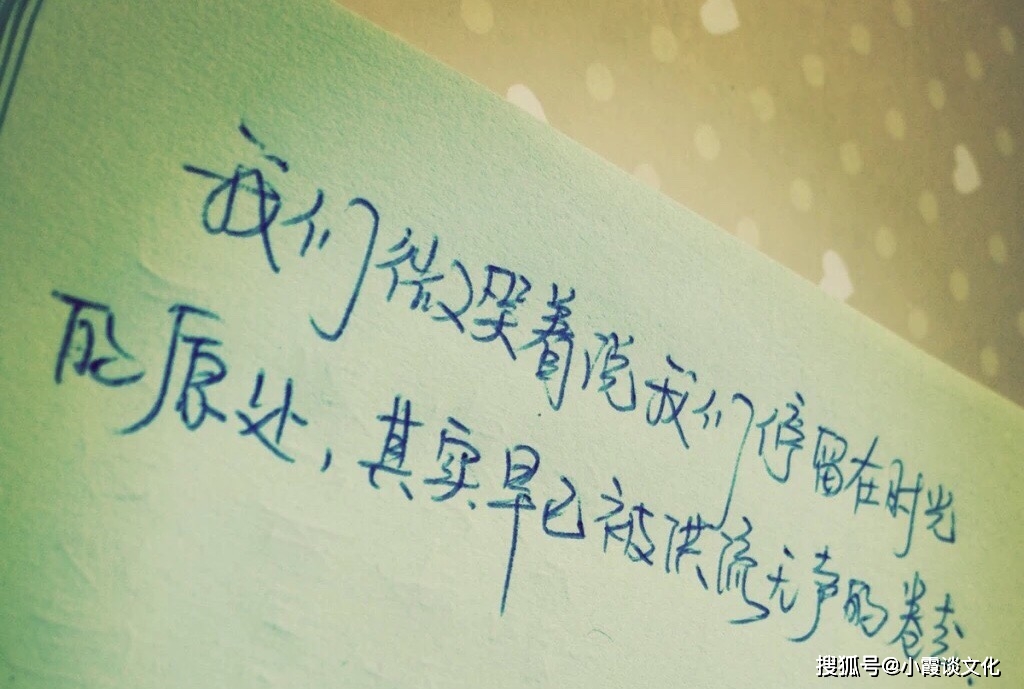 我们微笑着说我们停留在时光
的原处,其实早已被洪流无声的卷去.
搜狐号@小霞谈文化